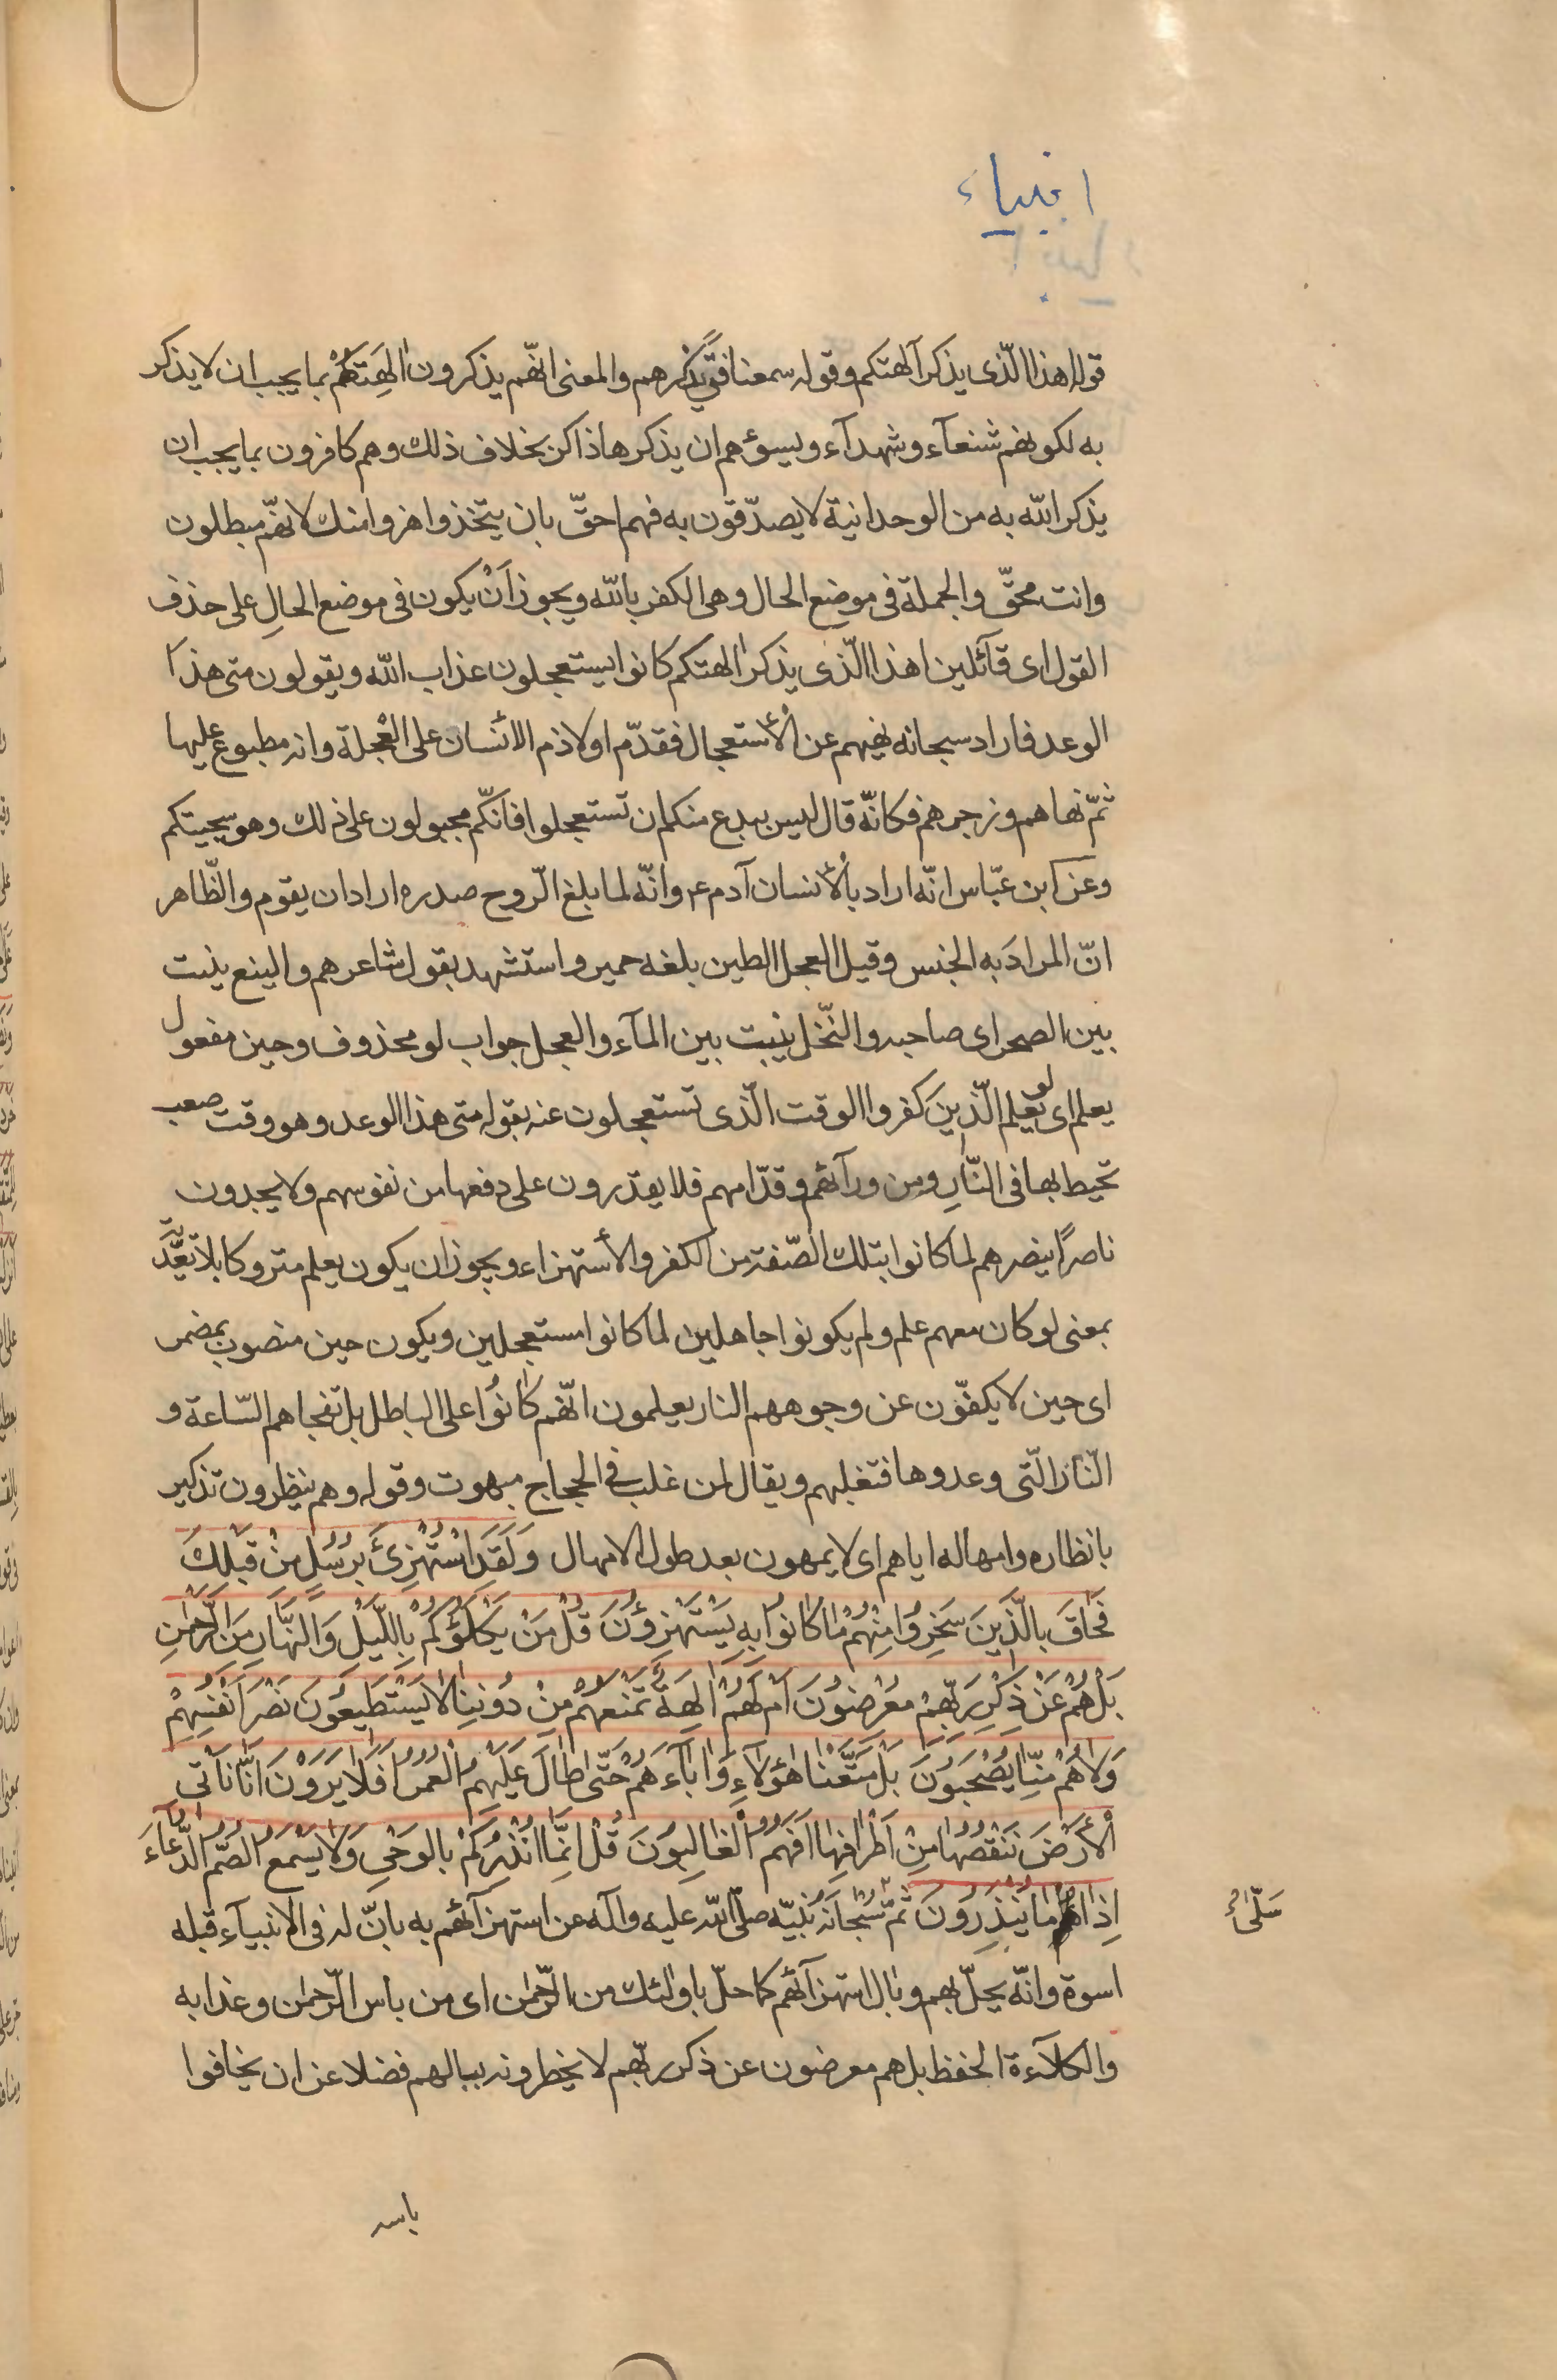 انبياء
قوله اهذا الّذى يذكر آلهتكم وقوله سمعنا فتًى يذكرهم والمعنى انّهم يذكرون الِهَتَكُمْ بما يجب ان لا يذكر
به لكونهم شنعآء وشهدآء ويسؤهم ان يذكرها ذاكر بخلاف ذلك وهم كافرون بما يجب ان
يذكر الله به من الوحدانية لا يصدّقون به فهم احقّ بان يتخذوا هزوا منك لانهّم مبطلون
وانت محقّ والجملة فى موضع الحال وهى الكفر بالله ويجوز اَنْ يكون فى موضع الحالِ على حذف
القول اى قآئلين اهذا الّذى يذكر الهتكم كانوا يستعجلون عذاب الله ويقولون متى هذا
الوعد فاراد سبحانه نهيهم عن الأستعجال فقدّم اولا ذم الأنسان على الْعجلة وانه مطبوع عليها
ثمّ نهاهم وزجرهم فكانّه قال ليس ببدع منكم ان تستعجلوا فانكّم مجبولون على ذلك وهو سجيتكم
وعن ابن عبّاس انّه اراد بالأنسان آدم ع وانّه لما بلغ الرّوح صدره اراد ان يقوم والظّاهر
انّ المرادَ به الجنس وقيل العجل الطين بلغه حمير واستشهد بقول شاعرهم والينع ينبت
بين الصحراى صاحبه والنّخل ينبت بين المآء والعجل جواب لو محذوف وحين مفعول
يعلم اى لو يعلم الّذينَ كفروا الوقت الّذى تستعجلون عنه بقوله متى هذا الوعد وهو وقت صعب
تحيط بها فى النّارِ ومن ورآئهم وقدّامهم فلا يقدرون على دفعها من نفوسهم ولا يجدون
ناصراً ينصرهم لما كانوا بتلك الصّفة من الكفر والأستهزاء ويجوز ان يكون يعلم متروكا بلا تعَدّية
بمعنى لو كان معهم علم ولم يكونوا جاهلين لما كانوا مستعجلين ويكون حين منصوب بمضمر
اى حين لا يكفّون عن وجوههم النار يعلمون انّهم كانُوا على الباطل بل تفجاهم السّاعة و
النّار الّتى وعدوها فتغلبهم ويقال لمن غلب فى الحجاج مبهوت وقوله وهم ينظرون تذكير
بانظاره وامهاله اياهم اى لا يمهون بعد طول الامهال وَلَقَدِ اسْتُهْزِئَ بِرُسُلٍ مِنْ قَبْلِكَ
فَحَاقَ بِالَّذِينَ سَخِرُوا مِنْهُمْ مَا كَانُوا بِهِ يَسْتَهْزِؤُنَ قُلْ مَنْ يَكْلَؤُكُمْ بِاللَّيْلِ وَالنَّهَارِ مِنَ الرَّحْمٰنِ
بَلْ هُمْ عَنْ ذِكْرِ رَبِّهِمْ مُعْرِضُونَ اَمْ لَهُمْ الِهَةٌ تَمْنَعُهُمْ مِنْ دُونِنَا لَا يَسْتَطِيعُونَ نَصْرَ اَنْفُسِهِمْ
وَلَا هُمْ مِنَّا يُصْحَبُونَ بَلْ مَتَّعْنَا هٰؤُلَاءِ وَآبَآءَهُمْ حَتّٰى طَالَ عَلَيْهِمُ الْعُمُرُ اَفَلَا يَرَوْنَ اَنَّا نَأتى
الْأَرْضَ نَنْقُصُهَا مِنْ اَطْرَافِهَا اَفَهُمُ الْغَالِبُونَ قُلْ اِنَّمَا اُنْذِرُكُمْ بِالْوَحْىِ وَلَا يَسْمَعُ الصُّمُّ الدُّعَآءَ
اِذَا مَا يُنْذَرُونَ ثمّ سُبْحَانَهُ نَبيّه صلّى الله عليه وآله عن استهزآئهم به بانّ له فى الانبيآء قبله
سَلّىٰ
اسوة وانّه يحلّ بهم وبال استهزآئهم كما حلّ باولئك من الرّحمٰن اى من باس الرّحمٰن وعذابه
والكلآءة الحفظ بل هم معرضون عن ذكر ربّهم لا يخطرونه ببالهم فضلا عن ان يخافوا
باسه